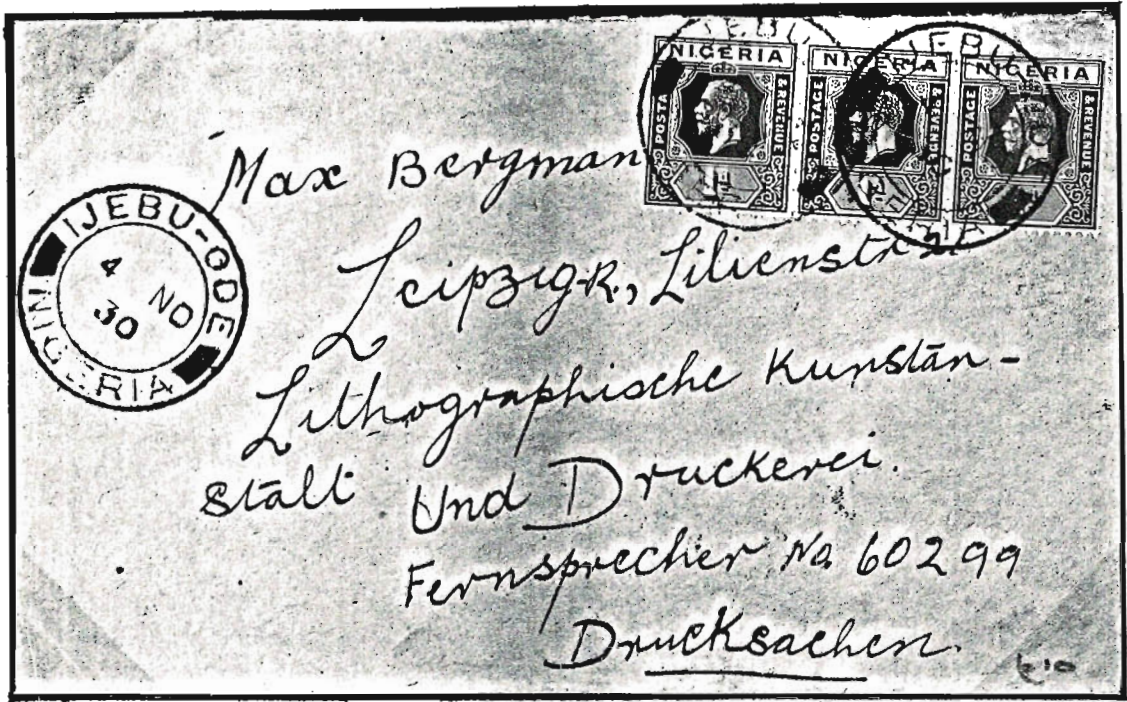 NIGERIA NIGERIA NIGERIA
POSTAGE & REVENUE POSTAGE & REVENUE POSTAGE & REVENUE
IJEBU-ODE
4 NO
30
NIGERIA
Max Bergman
Leipzig-R., Lilienstr.
Lithographische Kunstan-
stalt Und Druckerei.
Fernsprecher No 60299
Drucksachen.